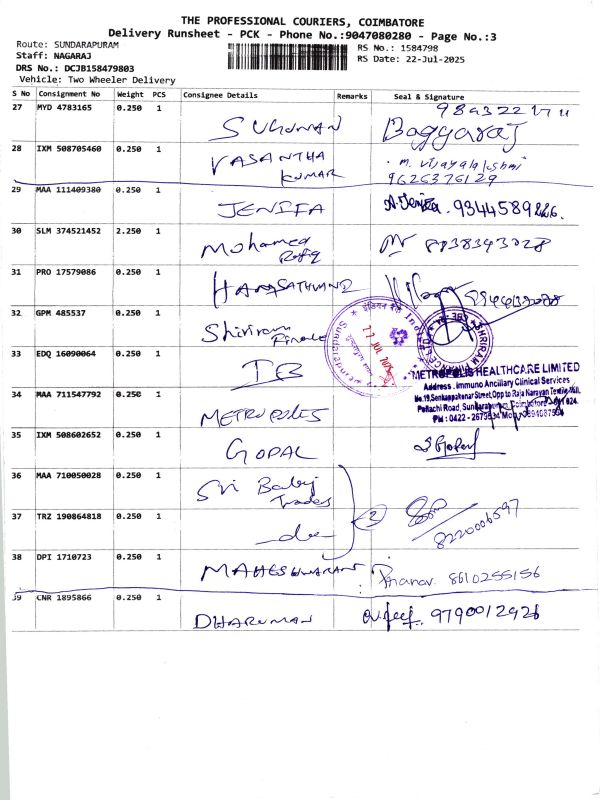 THE PROFESSIONAL COURIERS, COIMBATORE
Delivery Runsheet - PCK - Phone No.:9047080280 - Page No.:3
Route: SUNDARAPURAM
Staff: NAGARAJ
DRS No.: DCJB158479803
Vehicle: Two Wheeler Delivery
RS No.: 1584798
RS Date: 22-Jul-2025
S No Consignment No Weight PCS Consignee Details Remarks Seal & Signature
27 MYD 4783165 0.250 1
Baggyaraj
28 IXM 508705460 0.250 1
VASANTHA KUMAR m. Vijayalakshmi
9625376129
29 MAA 111409380 0.250 1
JENIFA 9344589226.
30 SLM 374521452 2.250 1
Mohamed Rafiq 8838393028
31 PRO 17579086 0.250 1
32 GPM 485537 0.250 1
Shriram Finance
22 JUL 2025
SHRIRAM
33 EDQ 16090064 0.250 1
IEB
METROPOLIS HEALTHCARE LIMITED
Address . Immuno Ancillary Clinical Services
No.19,Senkappakonar Street,Opp to Raja Narayan Textile Mill,
Pollachi Road, Sundarapuram, Coimbatore - 641 024.
34 MAA 711547792 0.250 1
METROPOLES
35 IXM 508602652 0.250 1
GOPAL S Gopal
36 MAA 710050028 0.250 1
Sri Balaj Trades
37 TRZ 190864818 0.250 1
-do- 2 8220006597
38 DPI 1710723 0.250 1
MAHESHWARAN Pranav. 8610255156
39 CNR 1895866 0.250 1
DHARUMAN 9790012926